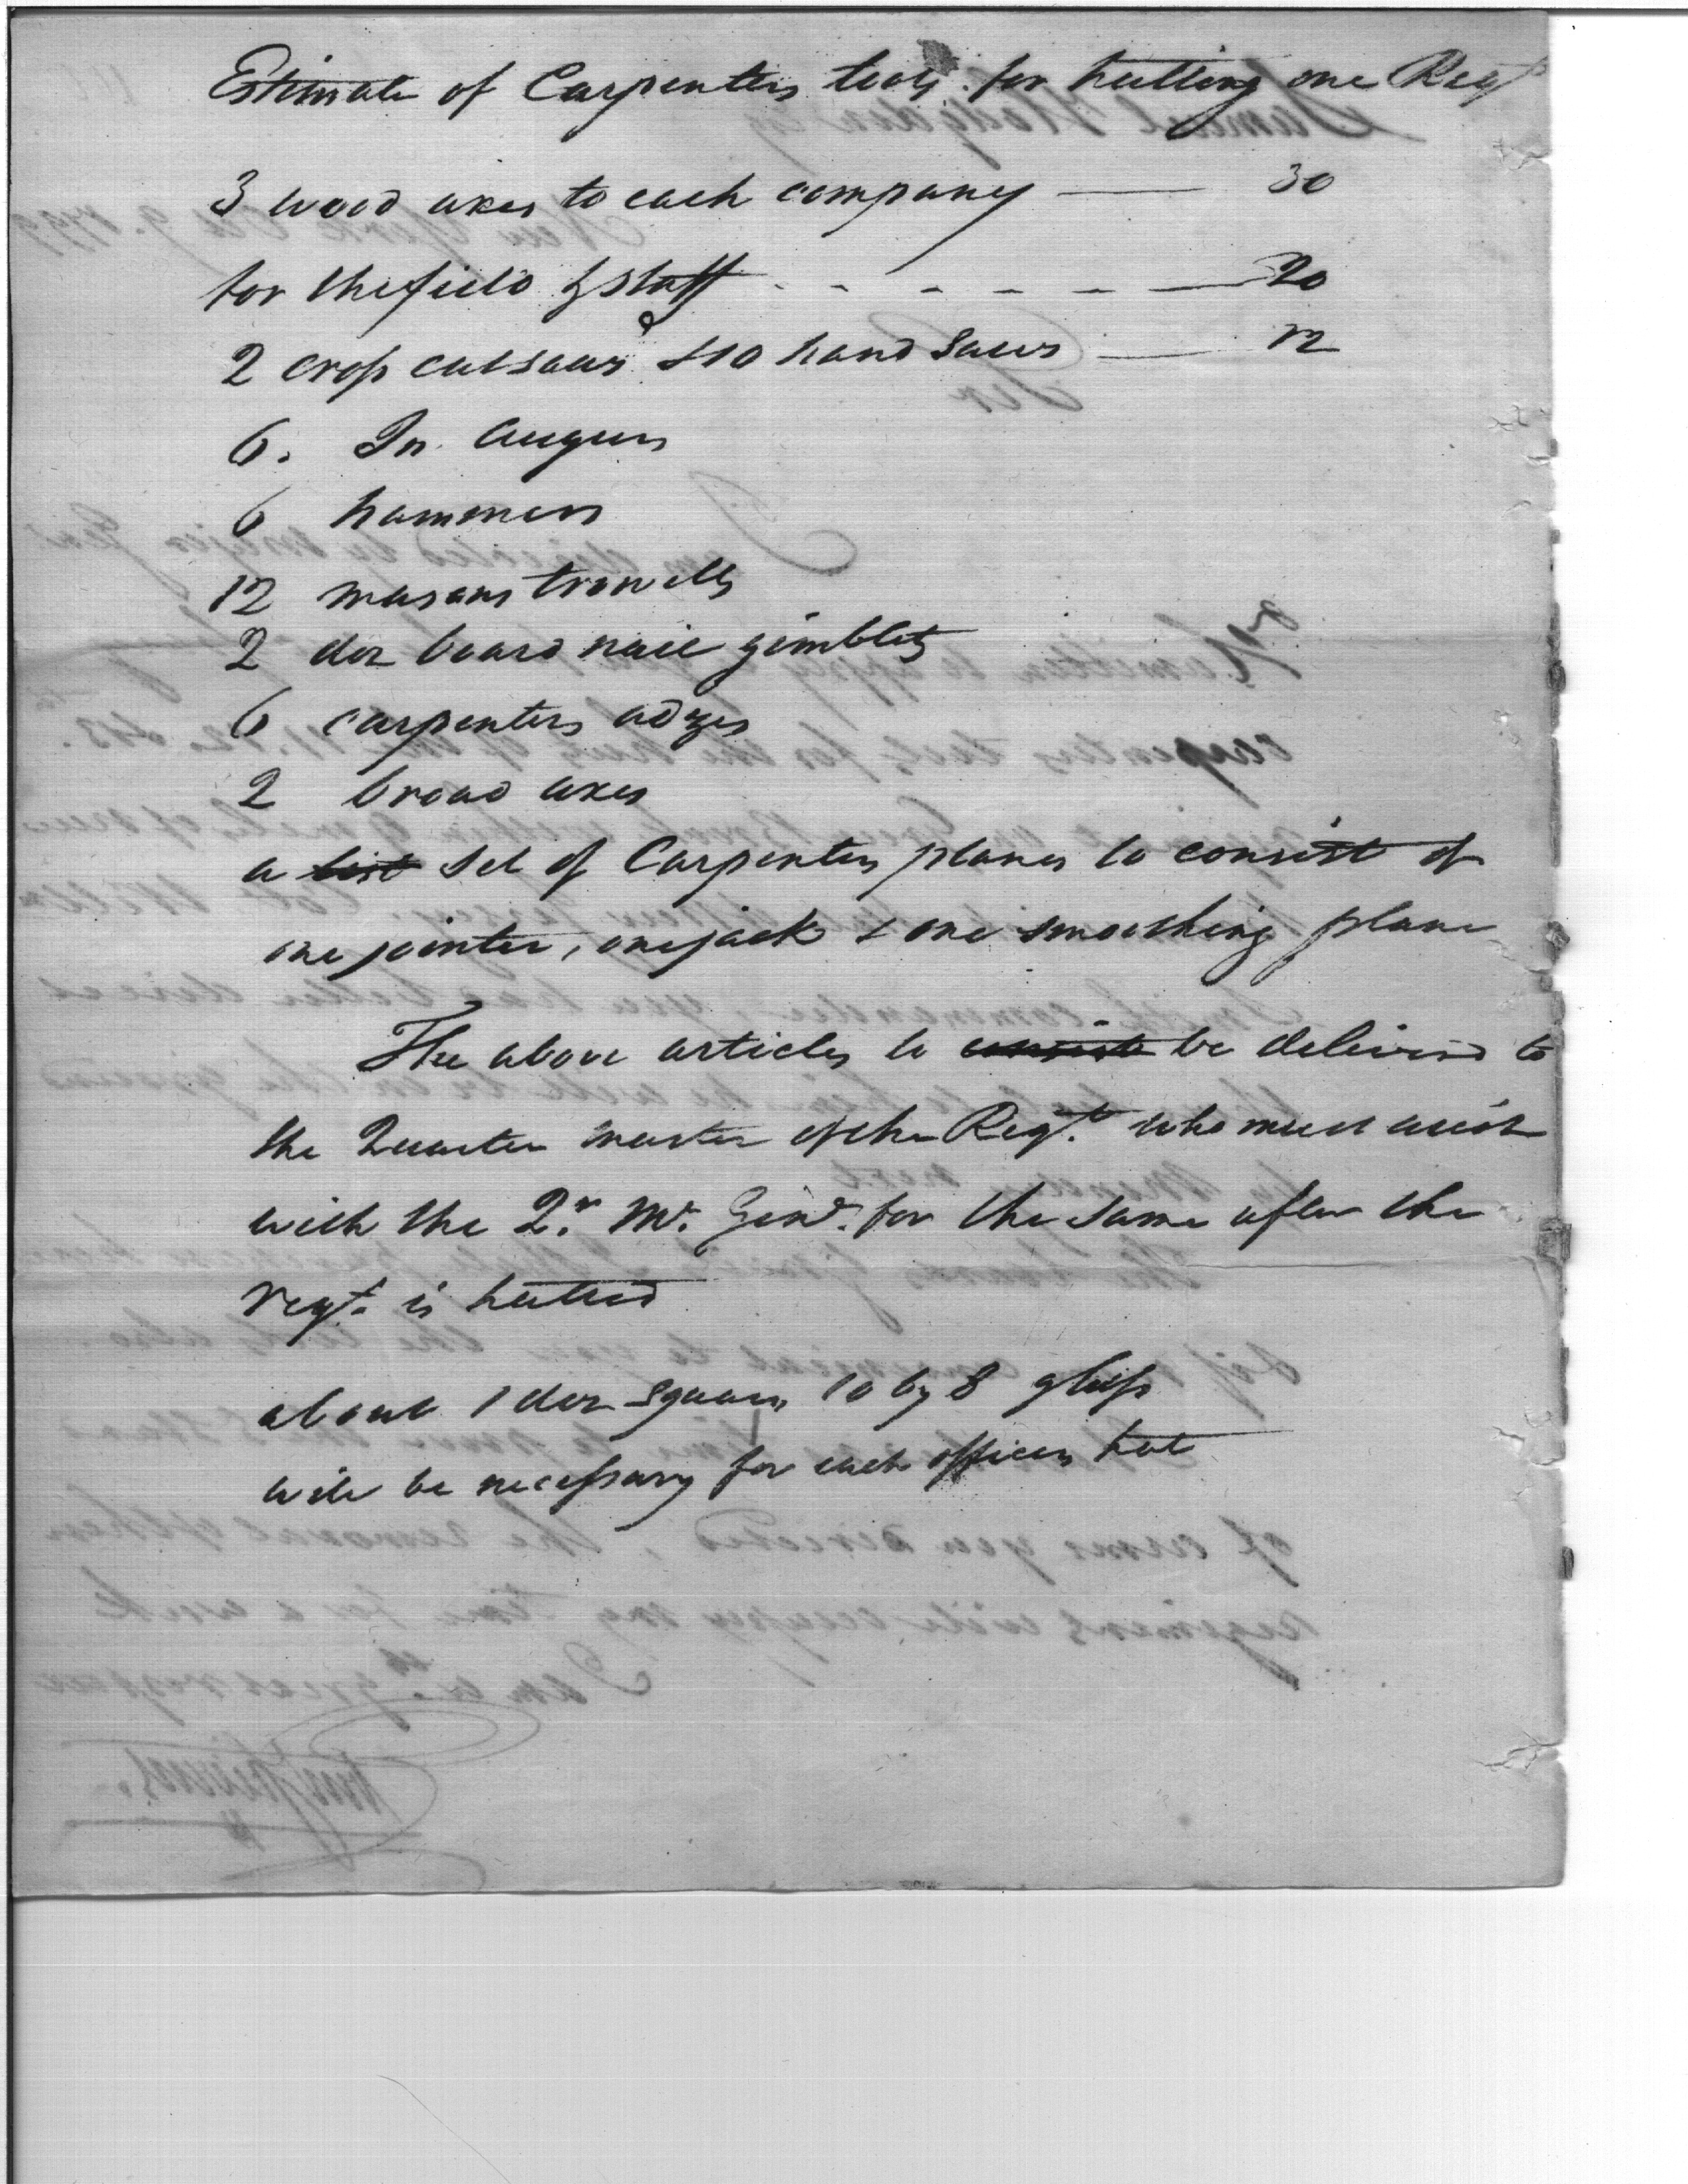 Estimate of Carpenters tools for hutting one Regt
3 wood axes to each company — 30
for the field & staff - - - - - — 20
2 cross cut saws & 10 hand saws — 12
6. In augurs
6 hammers
12 masons trowells
2 doz board nail gimblets
6 carpenters adzes
2 broad axes
a list set of Carpenters planes to consist of
one jointer, one jack & one smoothing plane
The above articles to consist be delivered to
the Quarter master of the Regt. who must
with the Qr. Mr. Genl. for the same after the
regt. is hutted
about 1 doz squares 10 by 8 glass
will be necessary for each officers hut